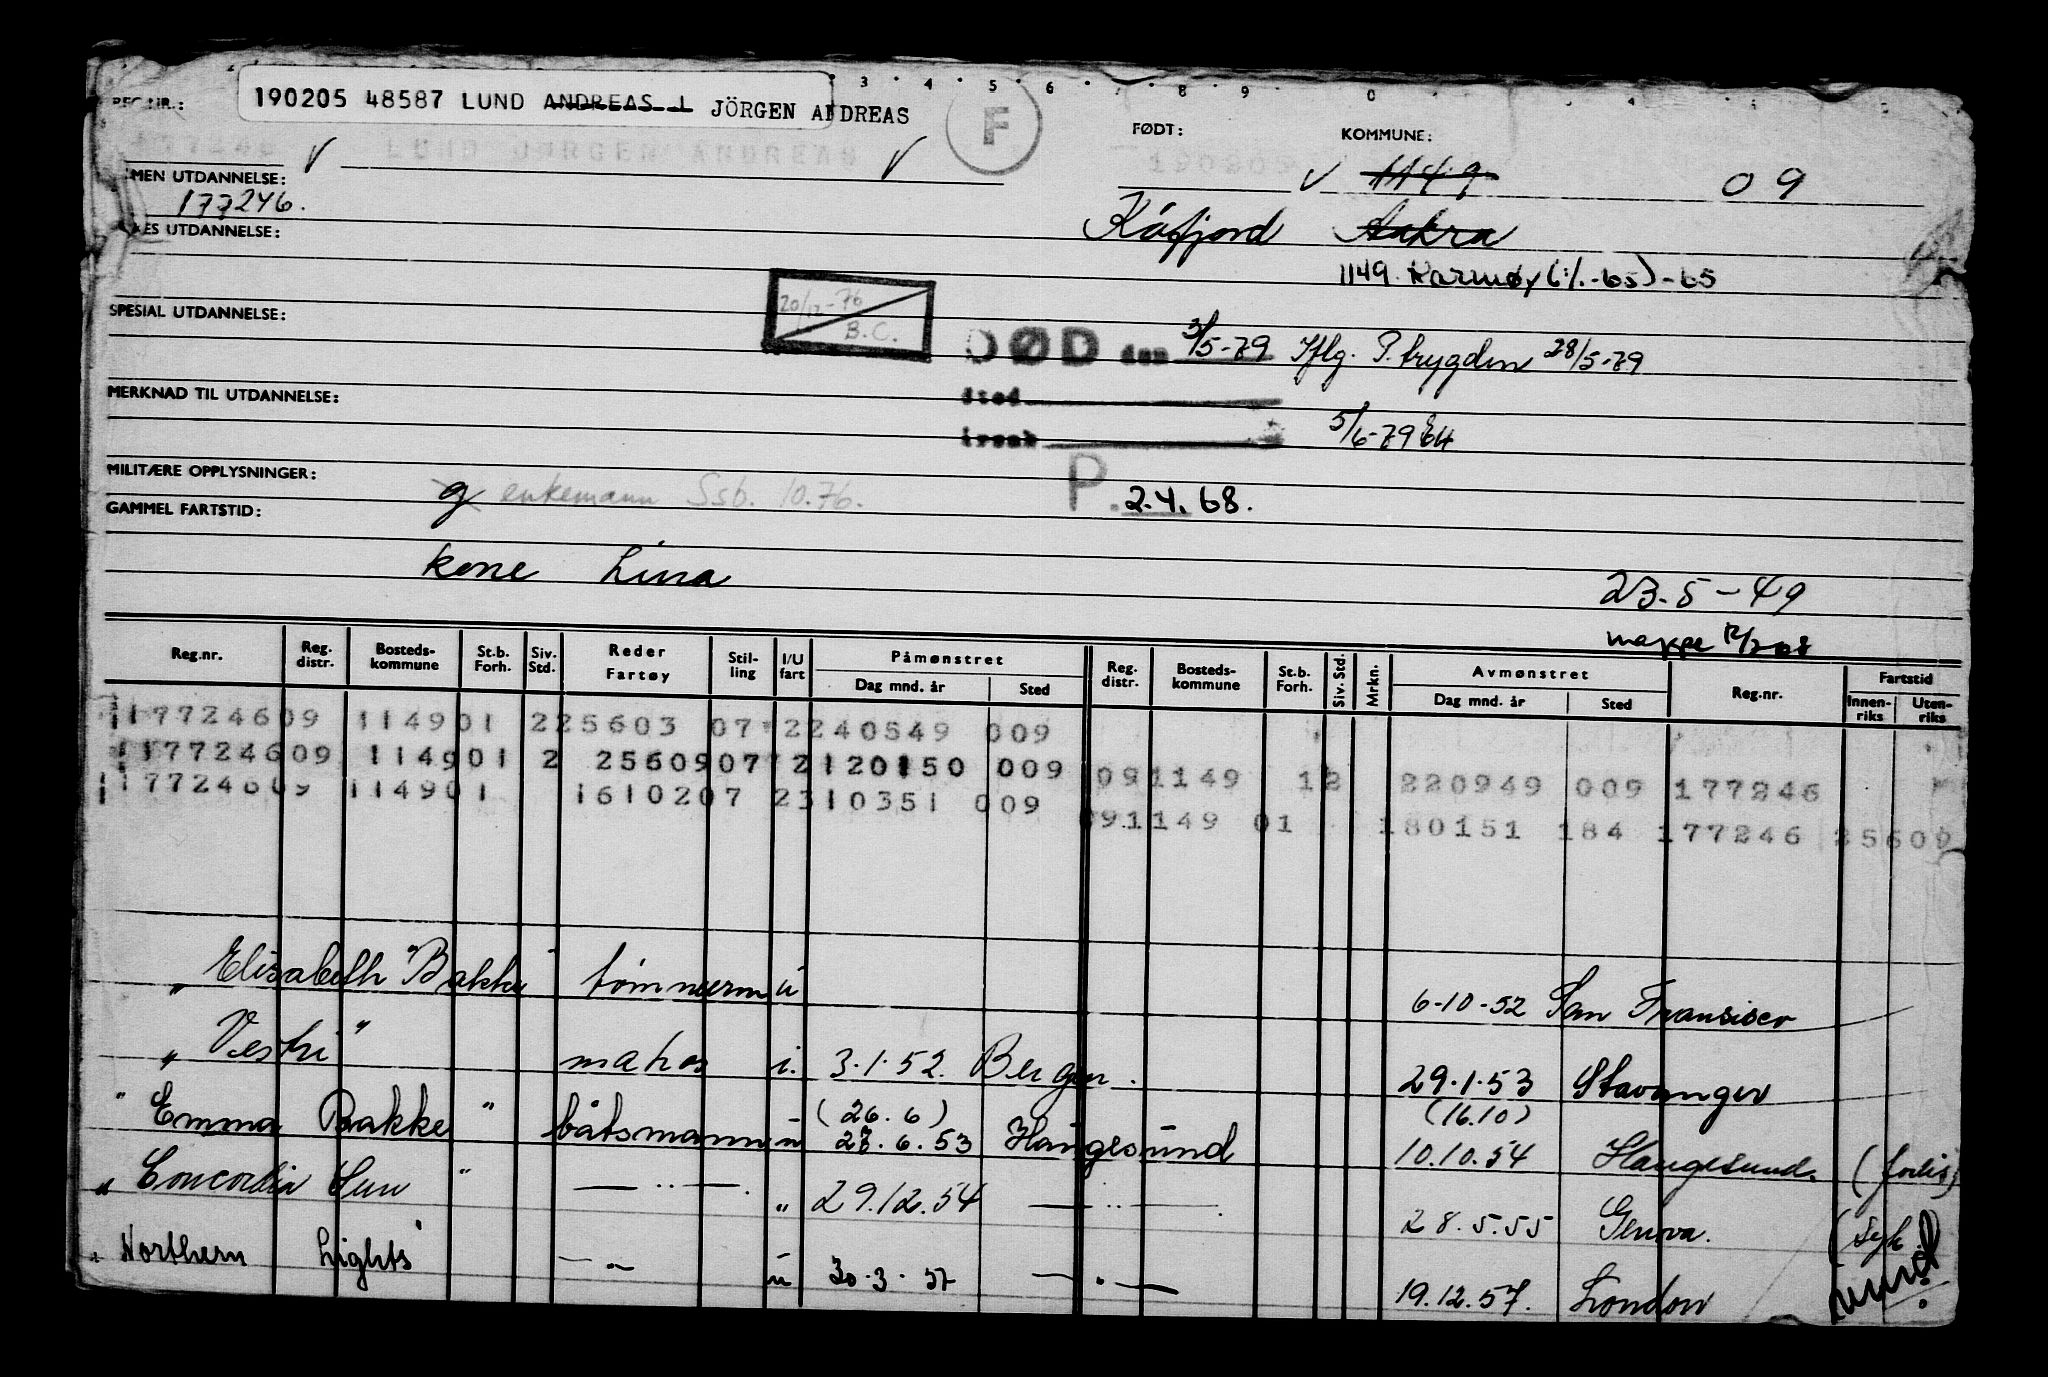 REG.NR.: 190205 48587 LUND ANDREAS L JÖRGEN ANDREAS F FØDT: KOMMUNE:
177246 LUND JØRGEN ANDREAS 190205 1149 09
ALMEN UTDANNELSE:
177246. Kåfjord Aakra
FAGLES UTDANNELSE:
1149 Karmøy (1/1-65)-65
20/12-76 B.C.
SPESIAL UTDANNELSE:
DØD den 3/5-79 Iflg. P. trygden 28/5-79
MERKNAD TIL UTDANNELSE:
sted
5/6-79
MILITÆRE OPPLYSNINGER:
g enkemann Ssb. 10.76. P. 2.4.68.
GAMMEL FARTSTID:
kone Lina 23-5-49
mappe
Reg.nr. Reg. distr. Bosteds-kommune St.b. Forh. Siv. Std. Reder Fartøy Stil-ling I/U fart Påmønstret Dag mnd. år Sted Reg. distr. Bosteds-kommune St.b. Forh. Siv. Std. Mrkn. Avmønstret Dag mnd. år Sted Reg.nr. Fartstid Innen-riks Uten-riks
117724609 114901 225603 07 2240549 009
117724609 114901 2 2560907 2120150 009 091149 12 220949 009 177246
117724609 114901 1610207 2310351 009 091149 01 180151 184 177246 25609
" Elisabeth Bakke" tømmerm u 6-10-52 San Fransisco
" Vestri" matros i. 3.1.52. Bergen. 29.1.53 Stavanger
" Emma Bakke" båtsmann u (26.6) 23.6.53 Haugesund (16.10) 10.10.54 Haugesund. (forlis)
" Concordia Sun" — " — " 29.12.54 — " — 28.5.55 Genova. (syk)
" Northern Lights" — " — u 30.3.57 — " — 19.12.57. London